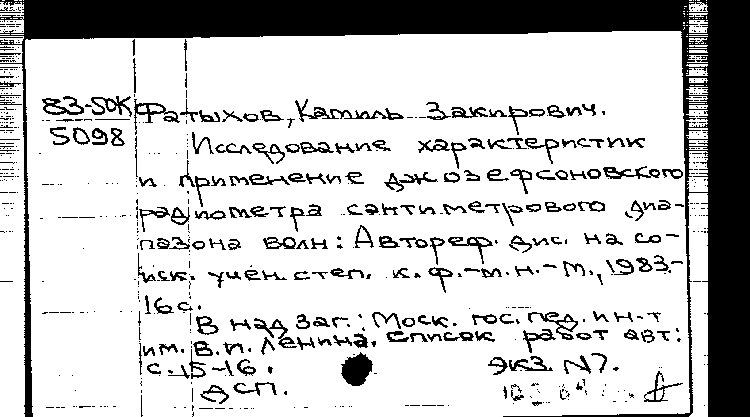 83-50К Фатыхов, Камиль Закирович.
5098
Исследование характеристик
и применение джозефсоновского
радиометра сантиметрового диа-
пазона волн: Автореф. дис. на со-
иск. учен. степ. к.ф.-м.н.-М., 1983.-
16с.
В надзаг.: Моск. гос. пед. ин-т
им. В.И. Ленина. Список работ авт:
с.15-16. экз. N7.
ДСП.